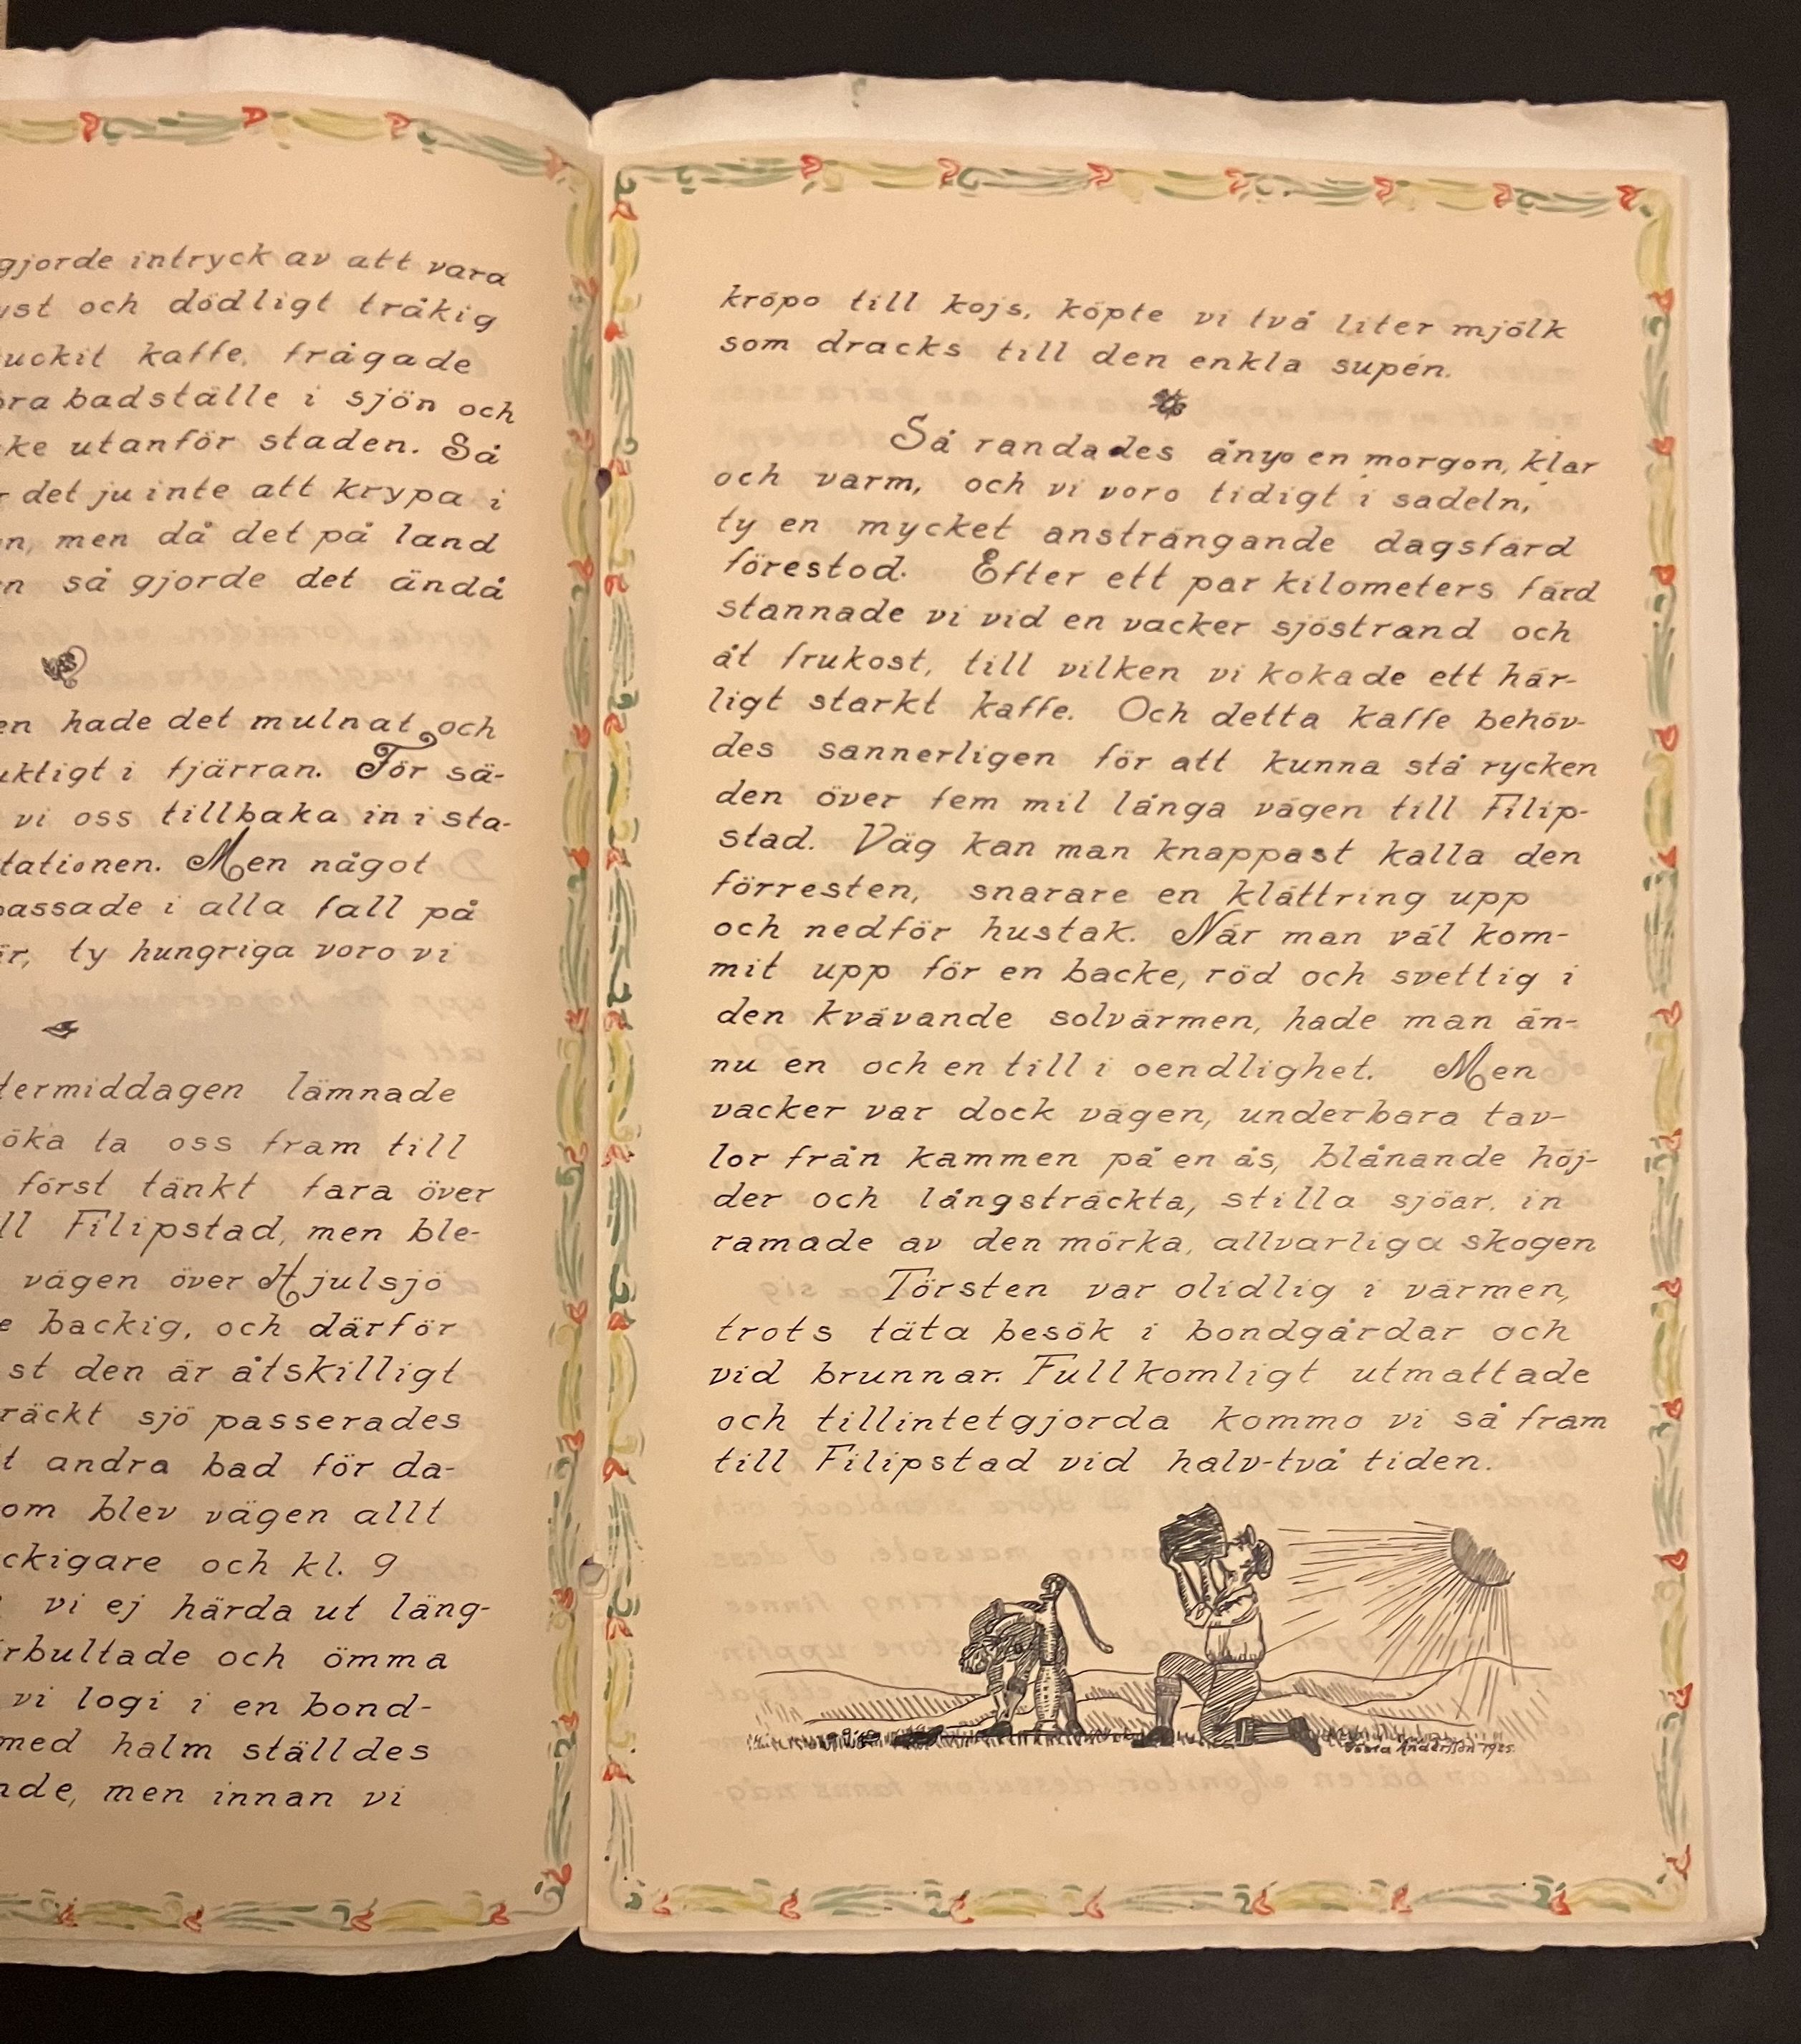 gjorde intryck av att vara
och dödligt tråkig
kaffe, frågade
badställe i sjön och
utanför staden. Så
det ju inte att krypa i
men då det på land
så gjorde det ändå
hade det mulnat och
i fjärran. För sä-
vi oss tillbaka in i sta-
Men något
i alla fall på
ty hungriga voro vi
lämnade
ta oss fram till
först tänkt fara över
Filipstad, men ble-
vägen över Hjulsjö
backig, och därför
den är åtskilligt
sjö passerades
andra bad för da-
blev vägen allt
och kl. 9
vi ej härda ut läng-
och ömma
vi logi i en bond-
med halm ställdes
men innan vi
kröpo till kojs, köpte vi två liter mjölk
som dracks till den enkla supén.
Så randades ånyo en morgon, klar
och varm, och vi voro tidigt i sadeln,
ty en mycket ansträngande dagsfärd
förestod. Efter ett par kilometers färd
stannade vi vid en vacker sjöstrand och
åt frukost, till vilken vi kokade ett här-
ligt starkt kaffe. Och detta kaffe behöv-
des sannerligen för att kunna stå rycken
den över fem mil långa vägen till Filip-
stad. Väg kan man knappast kalla den
förresten, snarare en klättring upp
och nedför hustak. När man väl kom-
mit upp för en backe, röd och svettig i
den kvävande solvärmen, hade man än-
nu en och en till i oendlighet. Men
vacker var dock vägen, underbara tav-
lor från kammen på en ås, blånande höj-
der och långsträckta, stilla sjöar, in
ramade av den mörka, allvarliga skogen
Törsten var olidlig i värmen,
trots täta besök i bondgårdar och
vid brunnar. Fullkomligt utmattade
och tillintetgjorda kommo vi så fram
till Filipstad vid halv-två tiden.
Andersson 1925